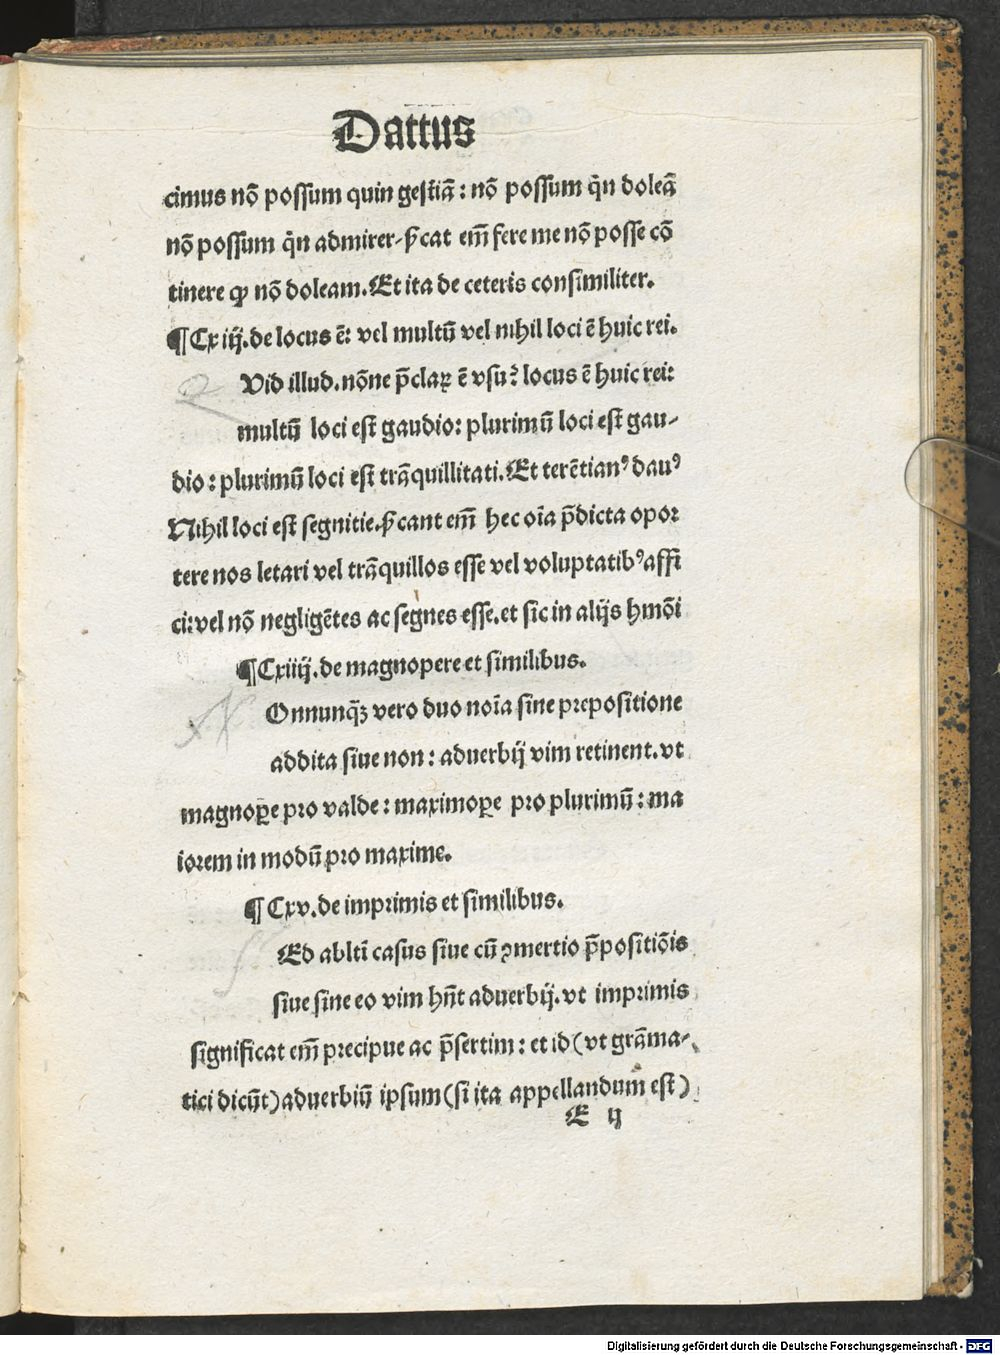 Dattus
cimus nō possum quin gestiā: nō possum q̄n doleā
nō possum q̄n admirer. sͥcat em̄ fere me nō posse cō
tinere qͥ nō doleam. Et ita de ceteris consimiliter.
¶ Cxiij. de locus ē: vel multū vel nihil loci ē huic rei.
Vid illud. nōne p̄claꝝ ē vsu? locus ē huic rei:
multū loci est gaudio: plurimū loci est gau-
dio: plurimū loci est trāquillitati. Et terētianꝰ dauꝰ
Nihil loci est segnitie. sͥcant em̄ hec oīa p̄dicta opor
tere nos letari vel trāquillos esse vel voluptatibꝰ affi
ci: vel nō negligētes ac segnes esse. et sic in alijs hmōi
¶ Cxiiij. de magnopere et similibus.
Onnunq̄ꝫ vero duo noīa sine prepositione
addita siue non: aduerbij vim retinent. vt
magnoꝑe pro valde: maximoꝑe pro plurimū: ma
iorem in modū pro maxime.
¶ Cxv. de imprimis et similibus.
Ed ablti casus siue cū ꝯmertio p̄positiōis
siue sine eo vim hn̄t aduerbij. vt imprimis
significat em̄ precipue ac p̄sertim: et id (vt grāma-
tici dicūt) aduerbiū ipsum (si ita appellandum est)
E ij
Digitalisierung gefördert durch die Deutsche Forschungsgemeinschaft - DFG